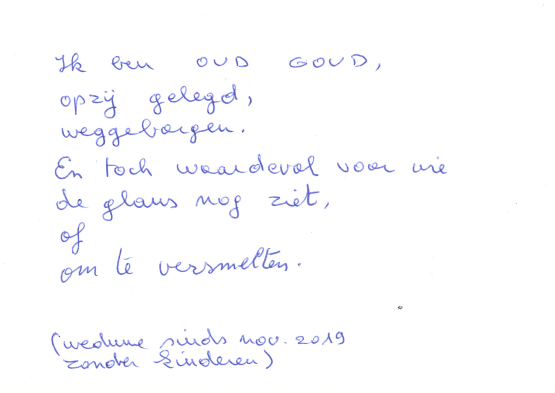 Ik ben OUD GOUD,
opzij gelegd,
weggeborgen.
En toch waardevol voor wie
de glans nog ziet,
of
om te versmelten.
(weduwe sinds nov. 2019
zonder kinderen)